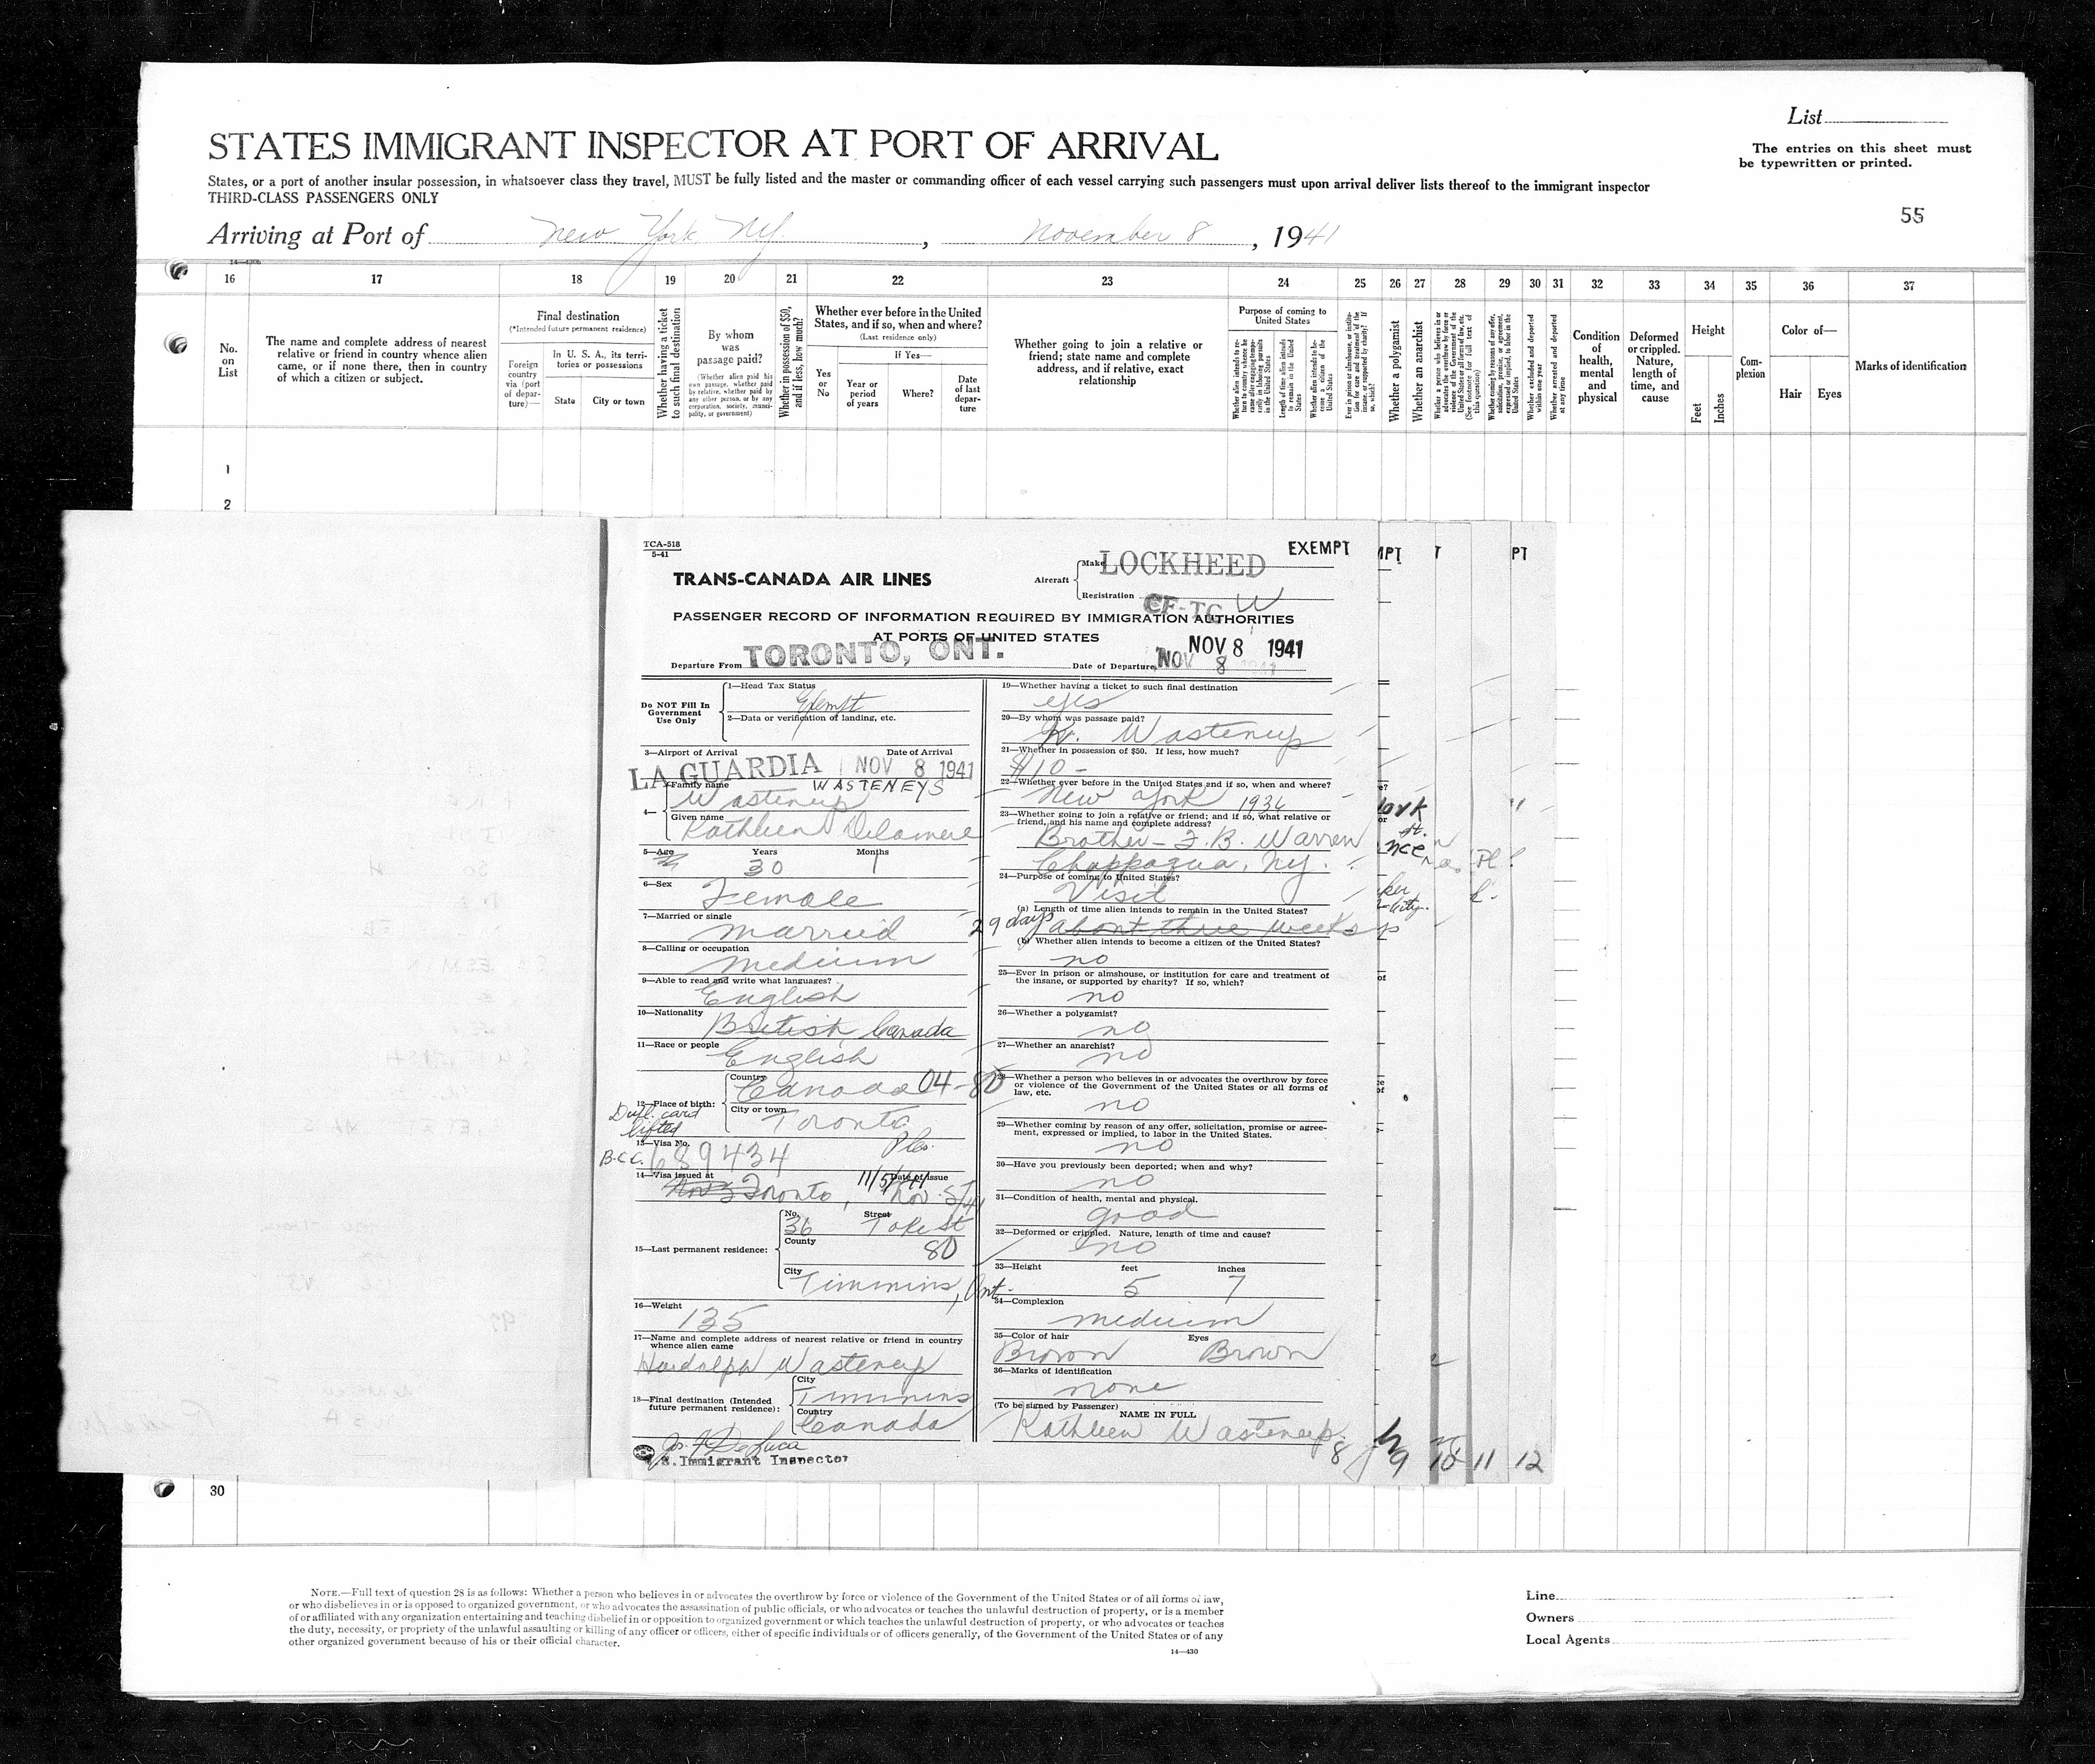 List
STATES IMMIGRANT INSPECTOR AT PORT OF ARRIVAL
The entries on this sheet must
be typewritten or printed.
States, or a port of another insular possession, in whatsoever class they travel, MUST be fully listed and the master or commanding officer of each vessel carrying such passengers must upon arrival deliver lists thereof to the immigrant inspector
THIRD-CLASS PASSENGERS ONLY
55
Arriving at Port of New York, NY. , November 8 , 1941
16 17 18 19 20 21 22 23 24 25 26 27 28 29 30 31 32 33 34 35 36 37
No. on List
The name and complete address of nearest relative or friend in country whence alien came, or if none there, then in country of which a citizen or subject.
Final destination
(*Intended future permanent residence)
Foreign country via (port of departure)—
In U. S. A., its territories or possessions
State
City or town
Whether having a ticket to such final destination
By whom was passage paid?
(Whether alien paid his own passage, whether paid by relative, whether paid by any other person, or by any corporation, society, municipality, or government)
Whether in possession of $50, and if less, how much?
Whether ever before in the United States, and if so, when and where?
(Last residence only)
Yes or No
If Yes—
Year or period of years
Where?
Date of last departure
Whether going to join a relative or friend; state name and complete address, and if relative, exact relationship
Purpose of coming to United States
Length of time alien intends to remain in the United States
Whether alien intends to become a citizen of the United States
Whether a polygamist
Whether an anarchist
Whether excluded and deported within one year
Whether arrested and deported at any time
Condition of health, mental and physical
Deformed or crippled. Nature, length of time, and cause
Height
Feet
Inches
Complexion
Color of—
Hair
Eyes
Marks of identification
1
2
TCA-518
5-41
EXEMPT
TRANS-CANADA AIR LINES
Aircraft
Make LOCKHEED
Registration CF-TC W
PASSENGER RECORD OF INFORMATION REQUIRED BY IMMIGRATION AUTHORITIES
AT PORTS OF UNITED STATES
Departure From TORONTO, ONT.
Date of Departure NOV 8 1941
NOV 8 1941
DO NOT FILL IN
Government
Use Only
1—Head Tax Status
Exempt
2—Data or verification of landing, etc.
3—Airport of Arrival Date of Arrival
LA GUARDIA NOV 8 1941
Family name WASTENEYS
Wasteneys
4—
Given name
Kathleen Delamere
5—Age Years Months
30 1
6—Sex
Female
7—Married or single
married
8—Calling or occupation
medium
9—Able to read and write what languages?
English
10—Nationality
British, Canada
11—Race or people
English
12—Place of birth:
Country
Canada 04-80
City or town
Toronto
Dupl. card
lifted
13—Visa No.
B.C.C. 689434
14—Visa issued at Date of issue
Toronto, 11/5/41 Nov. 5/41
15—Last permanent residence:
No. Street
36 Tokest
County
80
City
Timmins, Ont.
16—Weight
135
17—Name and complete address of nearest relative or friend in country
whence alien came
Hardolph Wasteneys
18—Final destination (Intended
future permanent residence):
City
Timmins
Country
Canada
U.S. Immigrant Inspector
19—Whether having a ticket to such final destination
yes
20—By whom was passage paid?
Wasteneys
21—Whether in possession of $50. If less, how much?
$10-
22—Whether ever before in the United States and if so, when and where?
New York 1936
23—Whether going to join a relative or friend; and if so, what relative or
friend, and his name and complete address?
Brother - F. B. Warren
Chappaqua, Ny.
24—Purpose of coming to United States?
Visit
(a) Length of time alien intends to remain in the United States?
29 days about three weeks
(b) Whether alien intends to become a citizen of the United States?
no
25—Ever in prison or almshouse, or institution for care and treatment of
the insane, or supported by charity? If so, which?
no
26—Whether a polygamist?
no
27—Whether an anarchist?
no
28—Whether a person who believes in or advocates the overthrow by force
or violence of the Government of the United States or all forms of
law, etc.
no
29—Whether coming by reason of any offer, solicitation, promise or agree-
ment, expressed or implied, to labor in the United States.
no
30—Have you previously been deported; when and why?
no
31—Condition of health, mental and physical.
good
32—Deformed or crippled. Nature, length of time and cause?
no
33—Height feet inches
5 7
34—Complexion
medium
35—Color of hair Eyes
Brown Brown
36—Marks of identification
none
(To be signed by Passenger)
NAME IN FULL
Kathleen Wasteneys
8 9 10 11 12
30
NOTE.—Full text of question 28 is as follows: Whether a person who believes in or advocates the overthrow by force or violence of the Government of the United States or of all forms of law,
or who disbelieves in or is opposed to organized government, or who advocates the assassination of public officials, or who advocates or teaches the unlawful destruction of property, or is a member
of or affiliated with any organization entertaining and teaching disbelief in or opposition to organized government or which teaches the unlawful destruction of property, or who advocates or teaches
the duty, necessity, or propriety of the unlawful assaulting or killing of any officer or officers, either of specific individuals or of officers generally, of the Government of the United States or of any
other organized government because of his or their official character.
14—430
Line
Owners
Local Agents